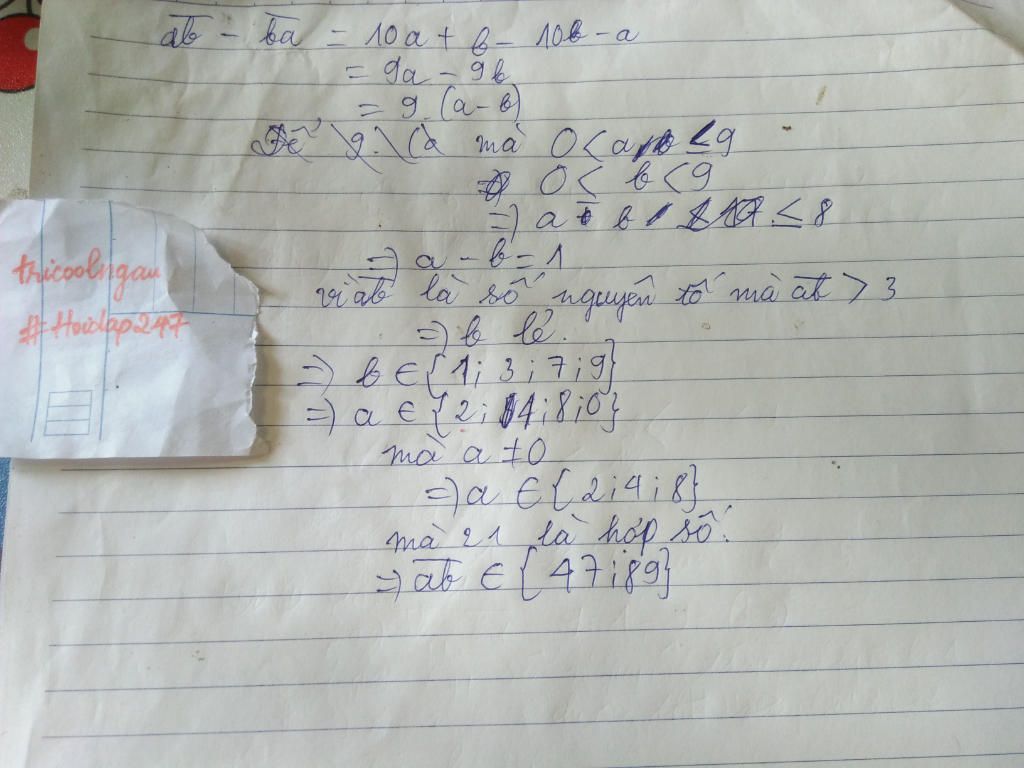 ab - ba = 10a + b - 10b - a
= 9a - 9b
= 9.(a-b)
mà 0 < a ≤ 9
0 < b < 9
=) a - b ≤ 8
=) a - b = 1
vì ab là số nguyên tố mà ab > 3
=) b lẻ.
=) b ∈ {1; 3; 7; 9}
=) a ∈ {2; 4; 8; 0}
mà a ≠ 0
=) a ∈ {2; 4; 8}
mà 21 là hợp số.
=) ab ∈ {47; 89}
tricoolngau
#Hoidap247